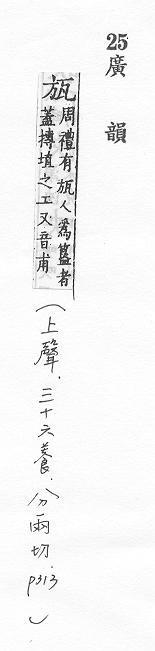 25廣韻
瓬周禮有瓬人為簋者
蓋摶埴之工又音甫
(上聲．三十六養．分兩切．p313)